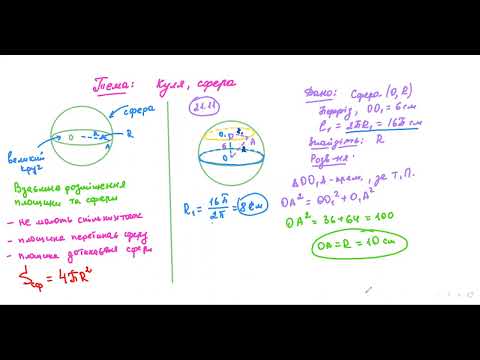 Тема: Куля, сфера
сфера
O
R
R
A
великий
круг
Взаємне розміщення
площини та сфери
- не мають спільних точок
- площина перетинає сферу
- площина дотикається сфери
Sсф = 4πR²
21.11
O₁
R₁
A
6
O
R
R₁ = 16π/2π = 8 см
Дано: Сфера (O, R)
Переріз, OO₁ = 6 см
ℓ₁ = 2πR₁ = 16π см
Знайдіть: R
Розв-ня:
△OO₁A - прям., за т. П.
OA² = OO₁² + O₁A²
OA² = 36 + 64 = 100
OA = R = 10 см